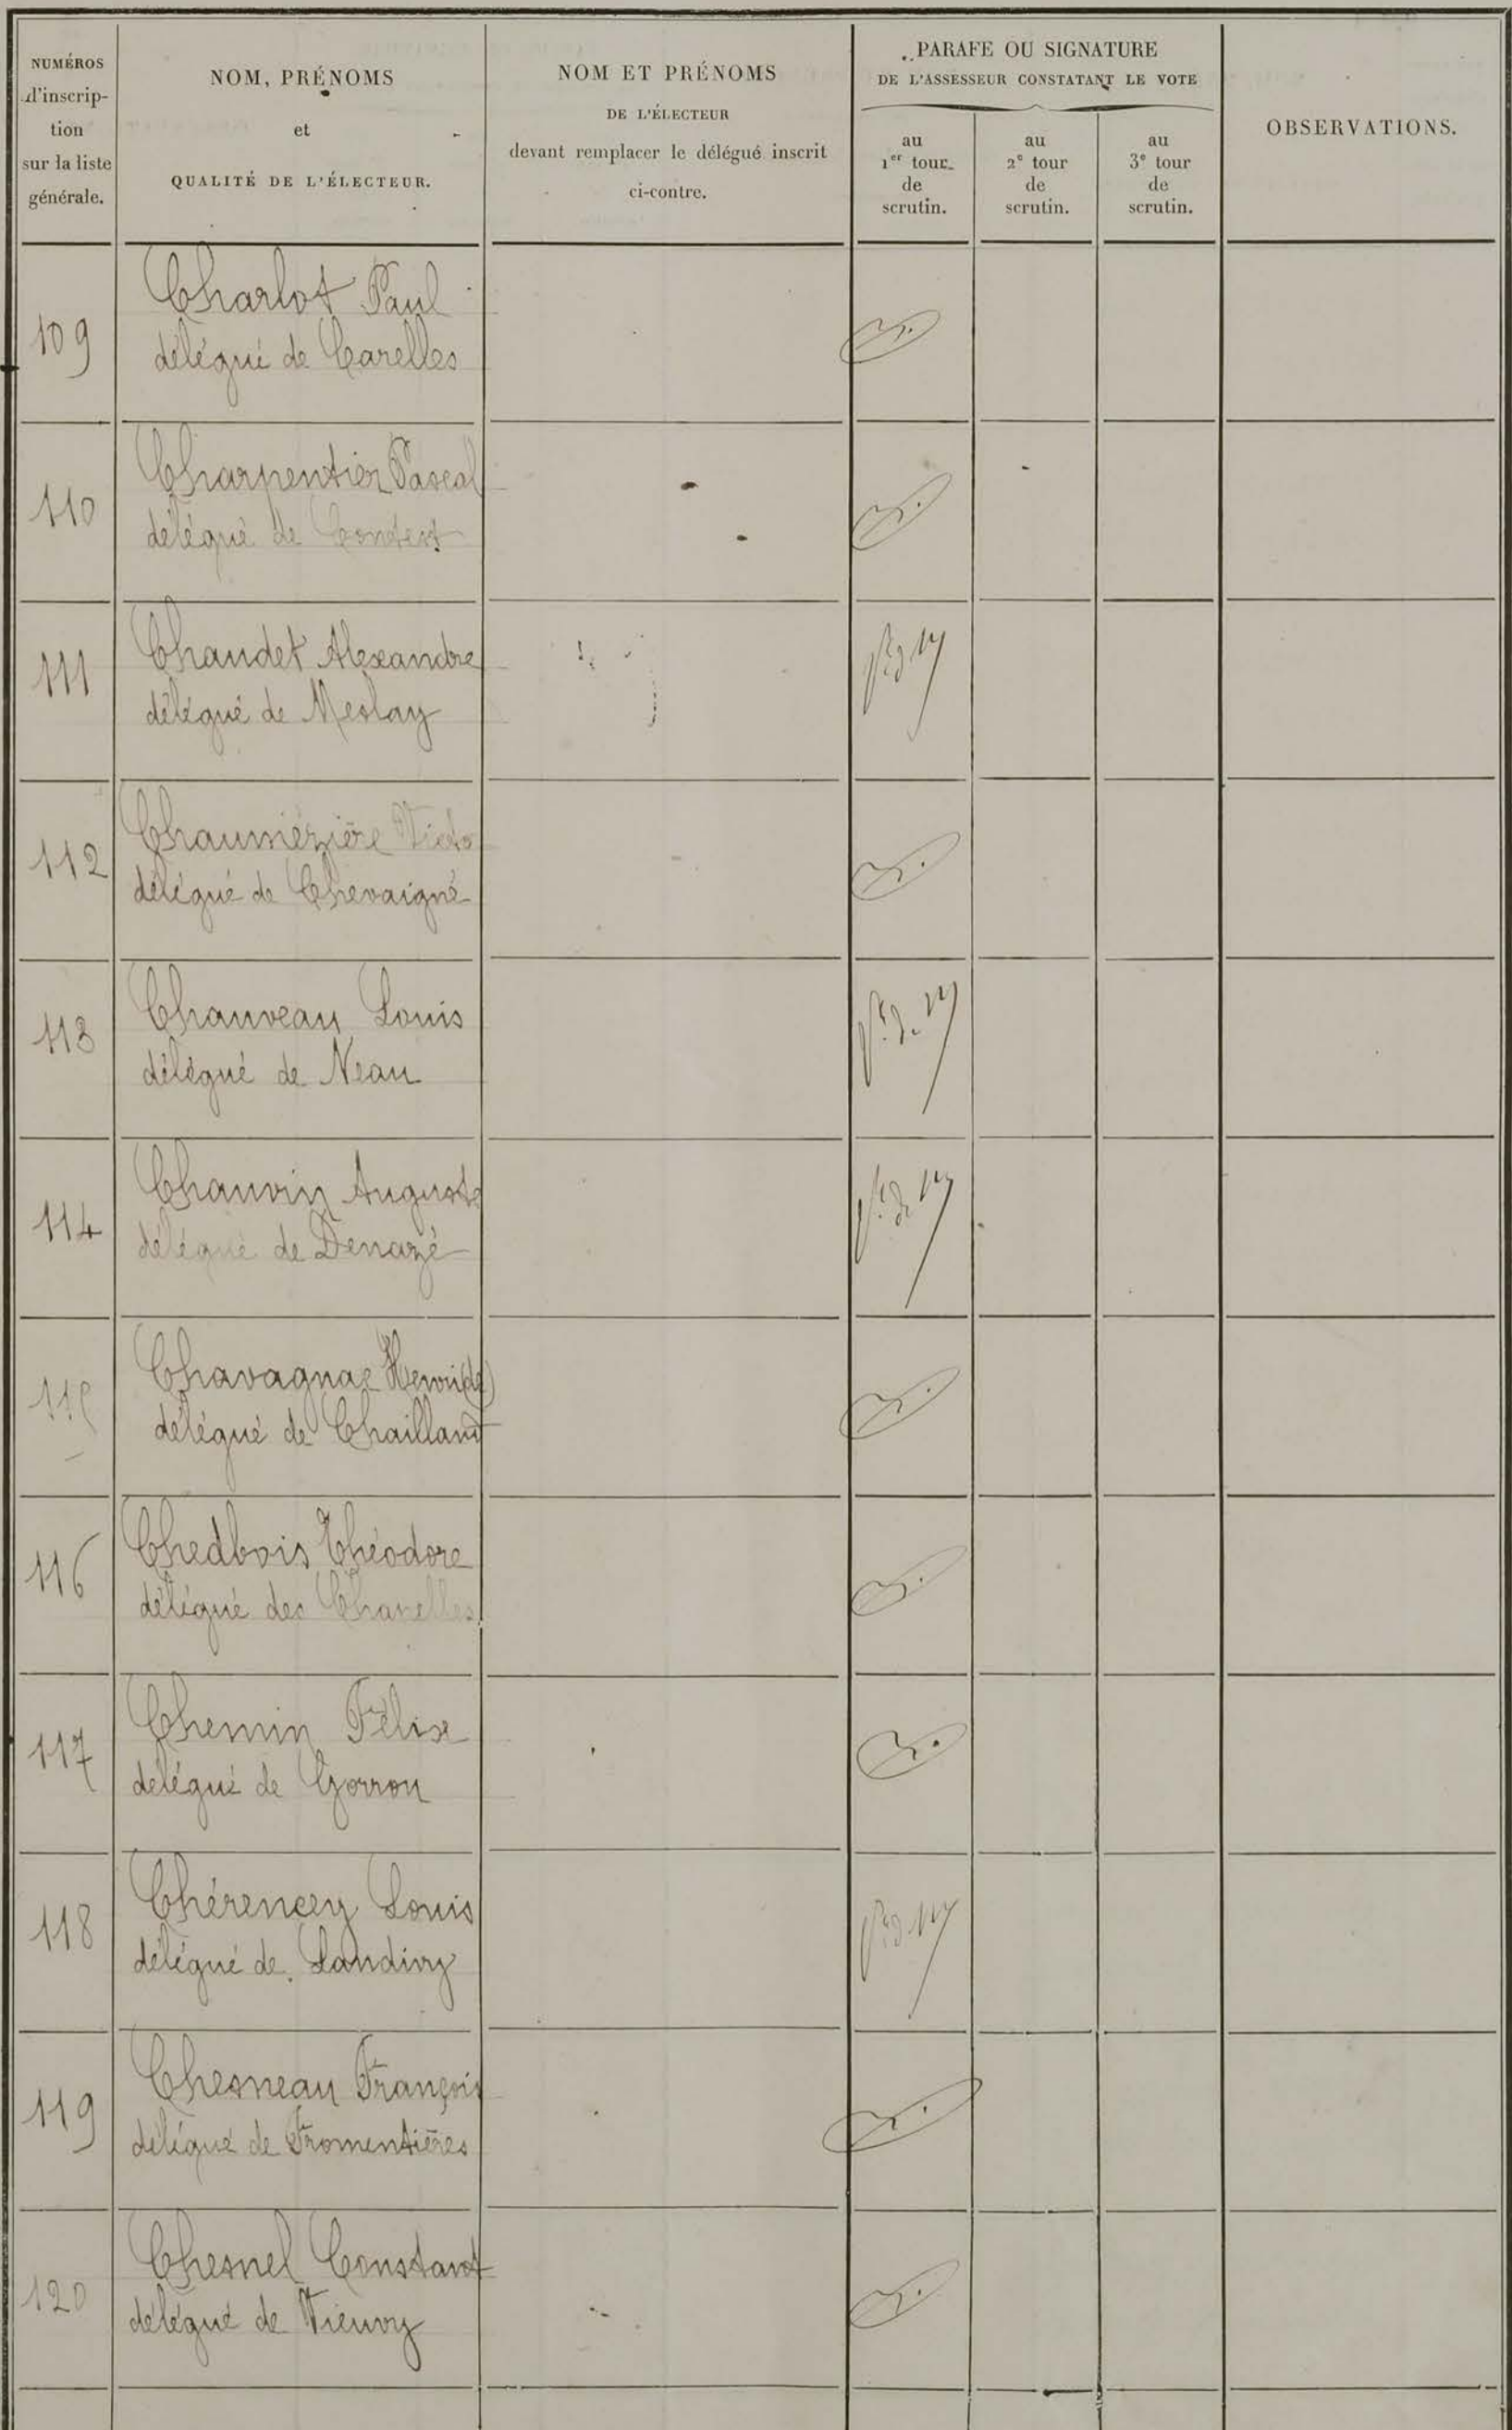 NUMÉROS
d'inscrip-
tion
sur la liste
générale.
NOM, PRÉNOMS
et
QUALITÉ DE L'ÉLECTEUR.
NOM ET PRÉNOMS
DE L'ÉLECTEUR
devant remplacer le délégué inscrit
ci-contre.
PARAFE OU SIGNATURE
DE L'ASSESSEUR CONSTATANT LE VOTE
au
1er tour
de
scrutin.
au
2e tour
de
scrutin.
au
3e tour
de
scrutin.
OBSERVATIONS.
109
Charlot Paul
délégué de Carelles
110
Charpentier Pascal
délégué de Contest
111
Chaudet Alexandre
délégué de Meslay
112
Chaumézière Victo
délégué de Chevaigné
113
Chauveau Louis
délégué de Neau
114
Chauvin Auguste
délégué de Denazé
115
Chavagnac Henri (de)
délégué de Chailland
116
Chedbois Théodore
délégué des Chapelles
117
Chemin Félix
délégué de Gorron
118
Chérencey Louis
délégué de Landivy
119
Chesneau François
délégué de Fromentières
120
Chesnel Constant
délégué de Vieuvy